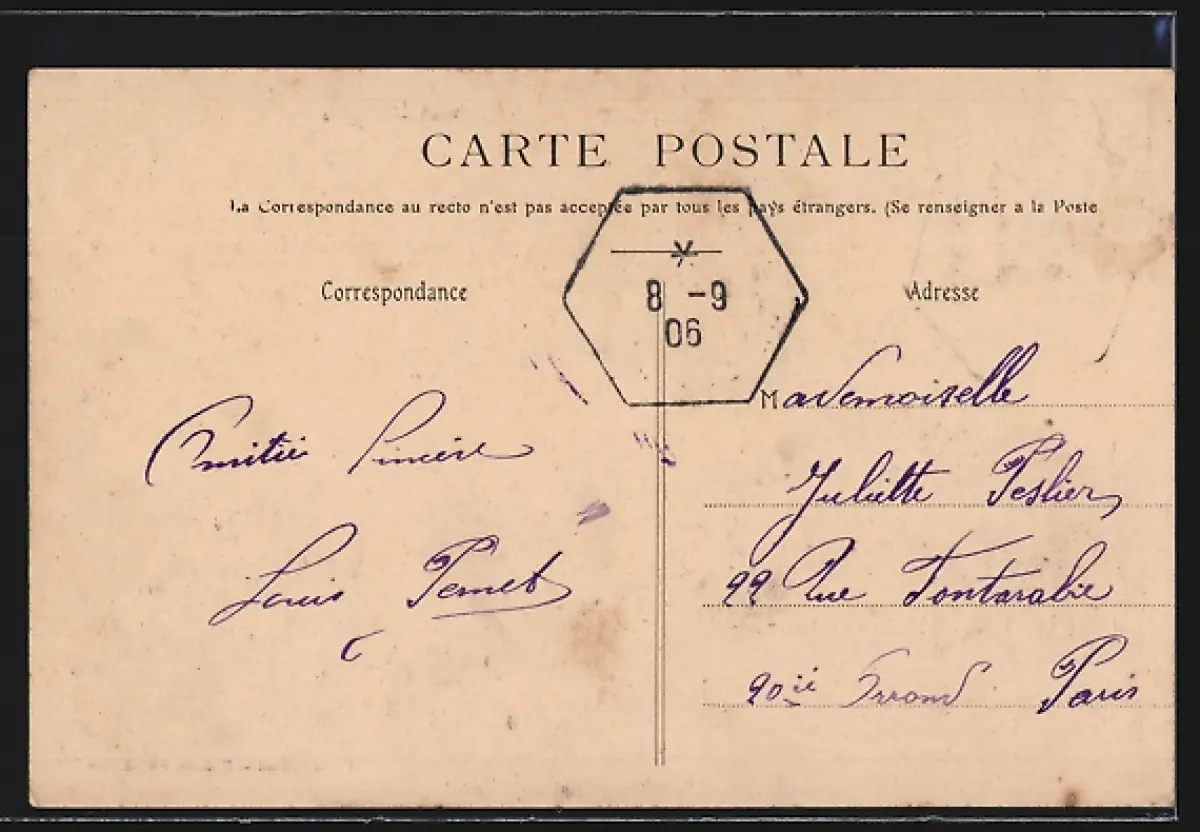 CARTE POSTALE
La Correspondance au recto n'est pas acceptée par tous les pays étrangers. (Se renseigner a la Poste
8 -9
06
Correspondance
Amitié Sincère
Louis
Adresse
Mademoiselle
Juliette Peslier
22 Rue Fontarabie
20ie Arrond Paris